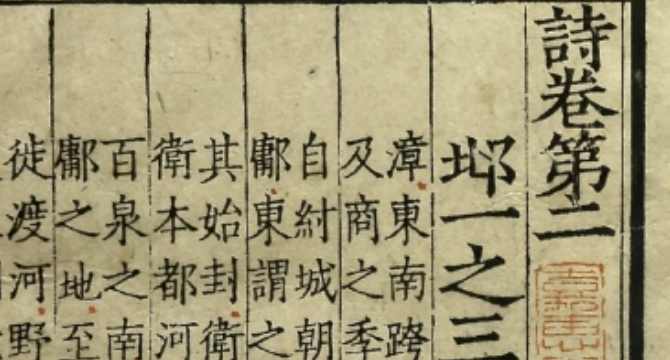 詩卷第二
邶一之三
漳東南跨
及商之季
自紂城朝
鄘東謂之
其始封衛
衛本都河
百泉之南
鄘之地至
徙渡河野